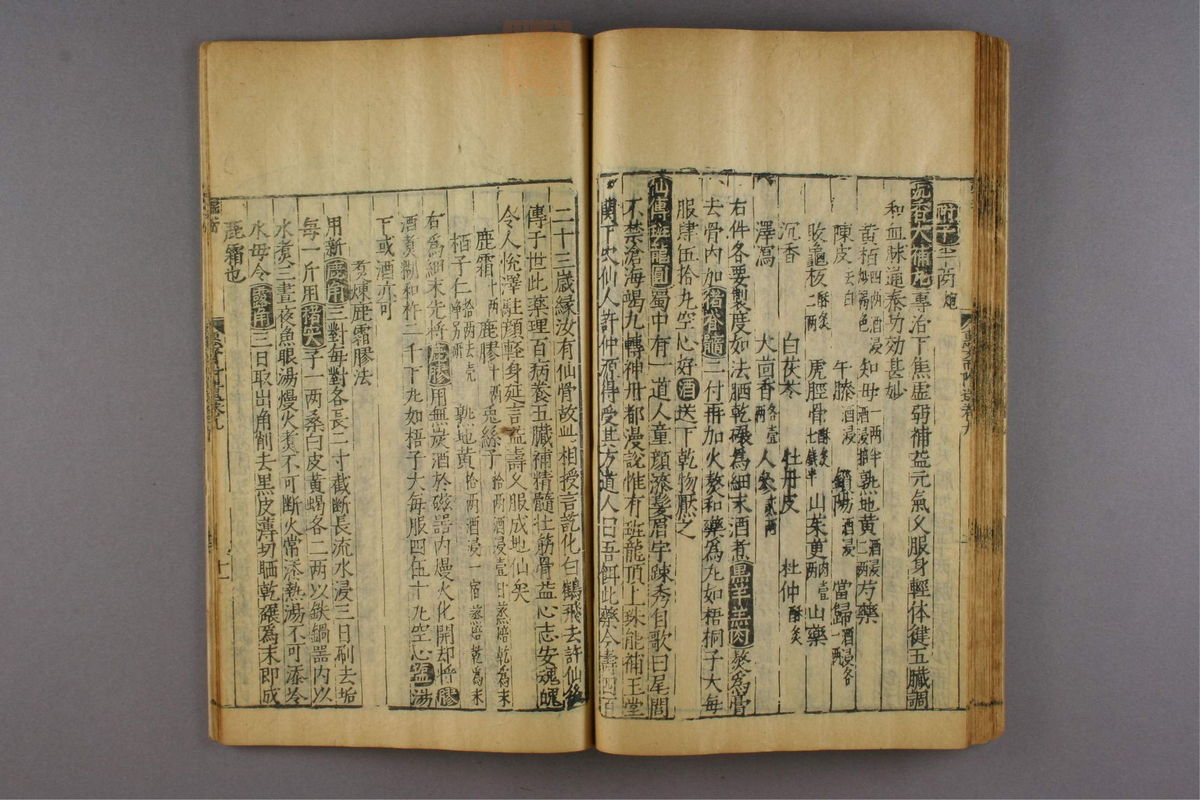 附子一兩炮
沉香大補丸專治下焦虛弱補益元氣久服身輕体健五臟調
和血脉通泰功効甚妙
黄栢四兩酒浸炒褐色 知母一兩半酒浸 熟地黄酒浸二兩 芍藥
陳皮去白 牛膝酒浸 鎖陽酒浸 當歸酒浸各一兩
敗龜板酥炙二兩 虎脛骨酥炙七錢半 山茱萸肉壹兩 山藥
沉香 白茯苓 牡丹皮 杜仲酥炙
澤瀉 大茴香各壹兩 人參貳兩
右件各要製度如法晒乾碾為細末酒煮黒羊羔肉熬為膏
去骨内加猪脊髓二付再加火熬和藥為丸如梧桐子大每
服肆伍拾丸空心好酒送下乾物壓之
仙傳班龍圓蜀中有一道人童顔漆髮眉宇踈秀自歌曰尾閭
不禁滄海竭九轉神丹都漫說惟有班龍頂上珠能補玉堂
関下穴仙人許仲源得受其方道人曰吾餌此藥今壽四百
二十三歲緣汝有仙骨故此相授言訖化白鶴飛去許仙後
傳子世此藥理百病養五臟補精髓壮筋骨益心志安魂魄
令人恱澤駐顔輕身延言益壽久服成地仙矣
鹿霜拾兩 鹿膠拾兩 兎絲子拾兩酒浸壹日蒸焙乾為末
栢子仁拾兩去殻 熟地黄拾兩酒浸一宿蒸焙乾為末
右為細末先將鹿膠用無灰酒於磁器内熳火化開却将膠
酒煮糊和杵二千下丸如梧子大每服四伍十丸空心盐湯
下或酒亦可
煮煉鹿霜膠法
用新鹿角三對每對各長二寸截断長流水浸三日刷去垢
每一斤用楮实子一兩桑白皮黄蝎各二兩以鉄鍋器内以
水煮三晝夜魚眼湯熳火煮不可断火常添熱湯不可添冷
水毋令露角三日取出角削去黒皮薄切晒乾碾為末即成
鹿霜也